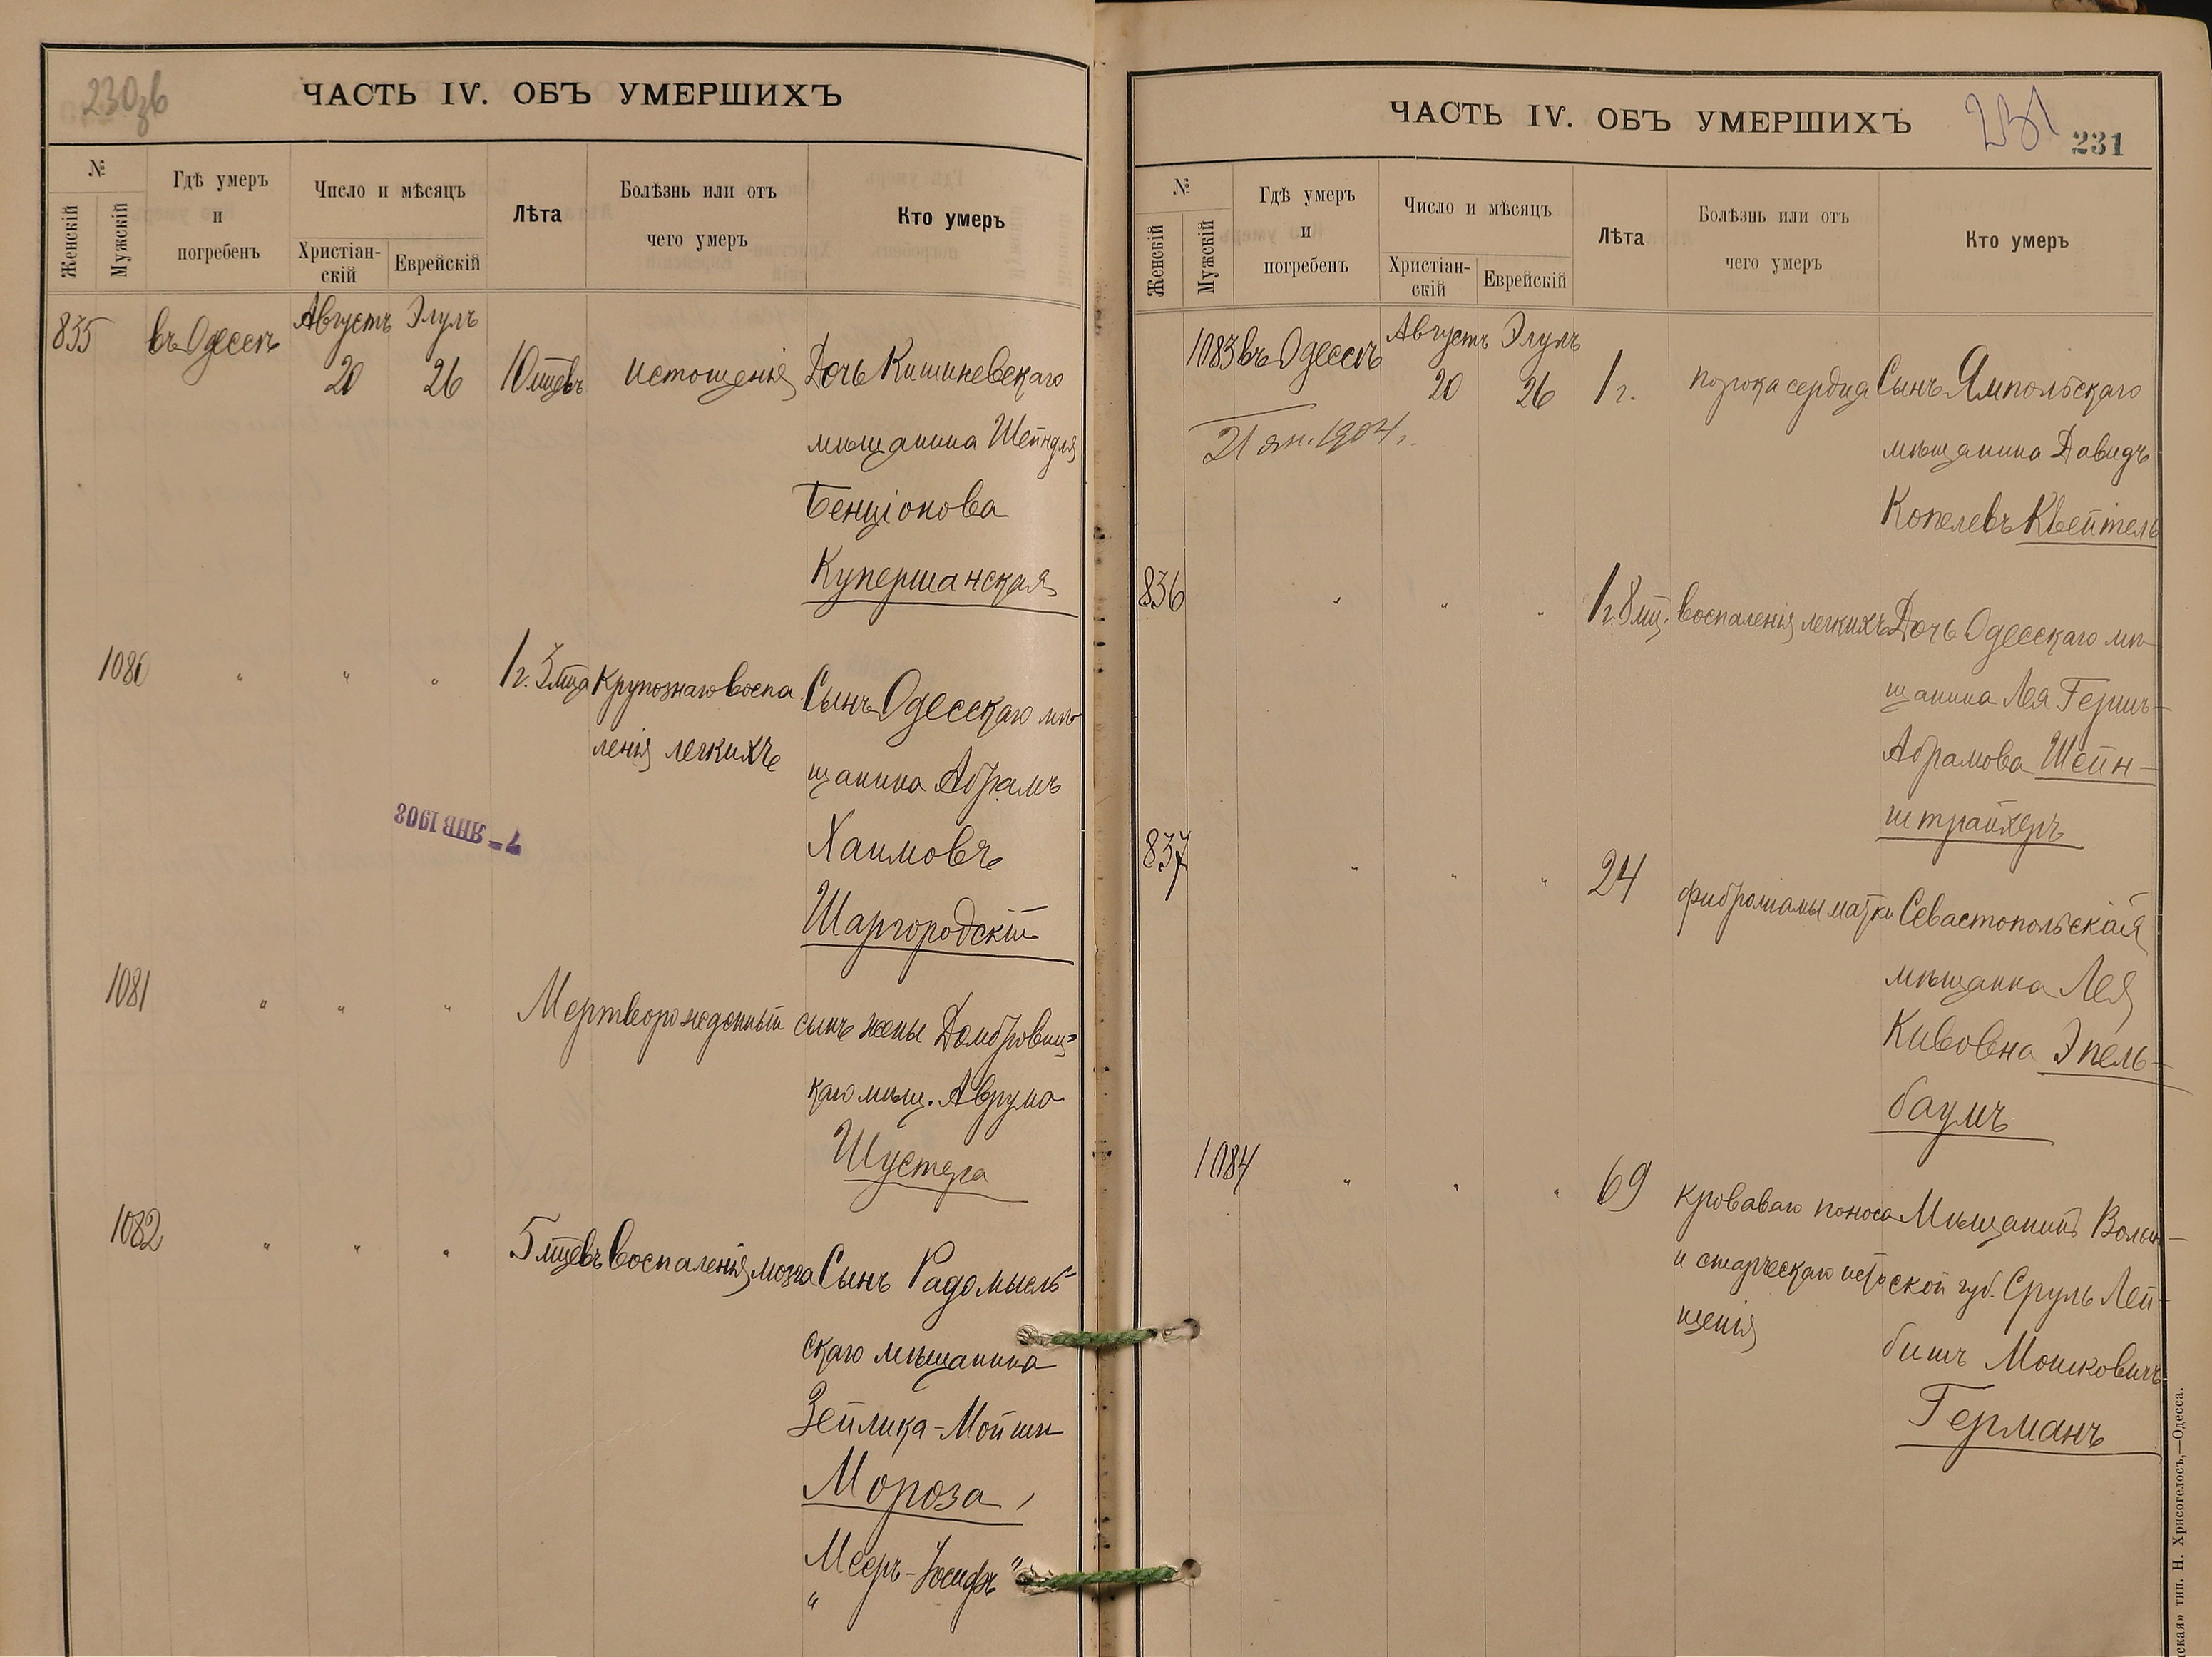 230 об
ЧАСТЬ IV. ОБЪ УМЕРШИХЪ
№
Женскій
Мужскій
Гдѣ умеръ
и
погребенъ
Число и мѣсяцъ
Христіан-
скій
Еврейскій
Лѣта
Болѣзнь или отъ
чего умеръ
Кто умеръ
835 въ Одессѣ Августъ 20 Элулъ 26 10 мцевъ истощенія Дочь Кишиневскаго
мѣщанина Шейндля
Бенціонова
Купершанская
1080 " " " 1 г. 3 мца крупознаго воспа Сынъ Одесскаго мѣ
ленія легкихъ щанина Абрамъ
Хаимовъ
Шаргородскій
7- ЯНВ 1908
1081 " " " Мертворожденный сынъ жены Домбровиц-
каго мѣщ. Аврума
Шустера
1082 " " " 5 мцевъ воспаленія мозга Сынъ Радомысль-
скаго мѣщанина
Зейлика-Мойши
Мороза,
"Мееръ-Іосифъ"
ЧАСТЬ IV. ОБЪ УМЕРШИХЪ
231
231
№
Женскій
Мужскій
Гдѣ умеръ
и
погребенъ
Число и мѣсяцъ
Христіан-
скій
Еврейскій
Лѣта
Болѣзнь или отъ
чего умеръ
Кто умеръ
1083 въ Одессѣ Августъ 20 Элулъ 26 1 г. порока сердца Сынъ Ямпольскаго
21 ян. 1904 г. мѣщанина Давидъ
Копелевъ Квейтель
836 " " " 1 г. 8 мц. воспаленія легкихъ Дочь Одесскаго мѣ
щанина Лея Гершъ-
Абрамова Шейн-
штрайхеръ
837 " " " 24 фиброміомы матки Севастопольская
мѣщанка Лея
Кивовна Эпель-
баумъ
1084 " " " 69 кроваваго поноса Мѣщанинъ Волын-
и старческаго исто ской губ. Сруль Лей-
щенія бишъ Мошковичъ
Германъ
ская» тип. Н. Хрисогелосъ,—Одесса.